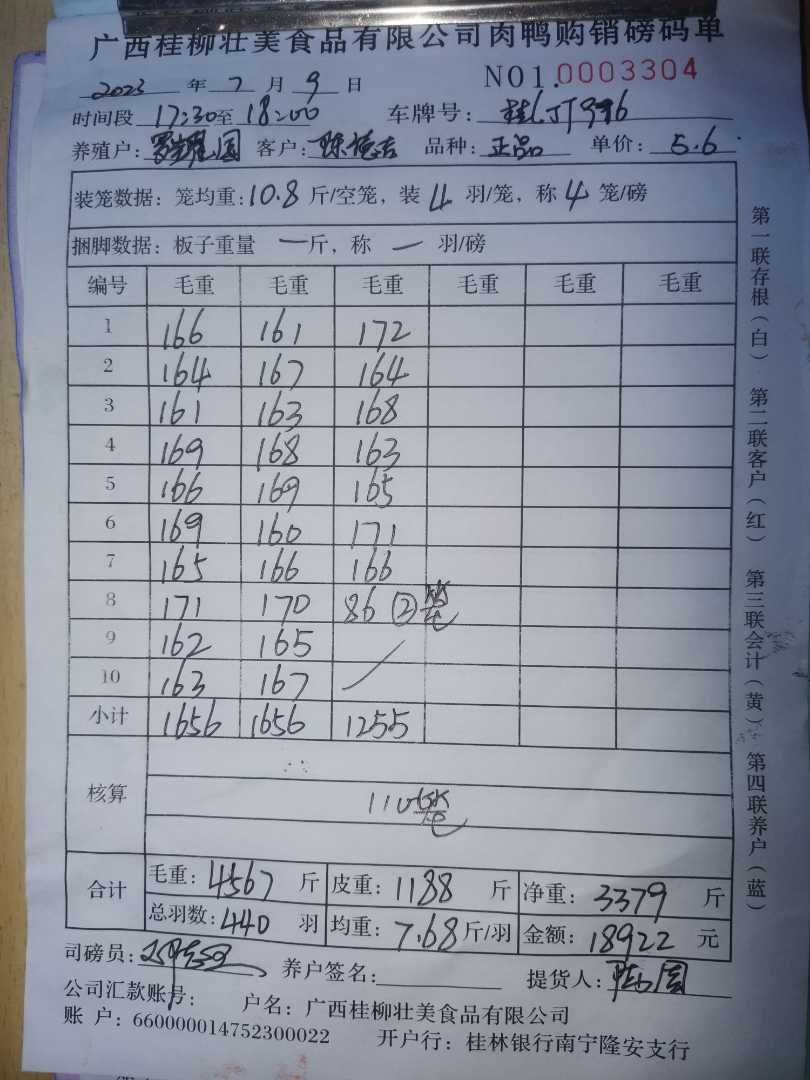 广西桂柳壮美食品有限公司肉鸭购销磅码单
2023 年 7 月 9 日 NO1.0003304
时间段 17:30至 18:00 车牌号:
养殖户: 客户: 品种: 正品 单价: 5.6
装笼数据: 笼均重: 10.8 斤/空笼, 装 4 羽/笼, 称 4 笼/磅
捆脚数据: 板子重量 一 斤, 称 一 羽/磅
编号 毛重 毛重 毛重 毛重 毛重 毛重
1 166 161 172
2 164 167 164
3 161 163 168
4 169 168 163
5 166 169 165
6 169 160 171
7 165 166 166
8 171 170 86 ②笼
9 162 165
10 163 167
小计 1656 1656 1255
核算 110笼
合计 毛重: 4567 斤 皮重: 1188 斤 净重: 3379 斤
总羽数: 440 羽 均重: 7.68 斤/羽 金额: 18922 元
司磅员: 养户签名: 提货人:
公司汇款账号: 户名: 广西桂柳壮美食品有限公司
账 户: 660000014752300022 开户行: 桂林银行南宁隆安支行
第一联存根(白) 第二联客户(红) 第三联会计(黄) 第四联养户(蓝)